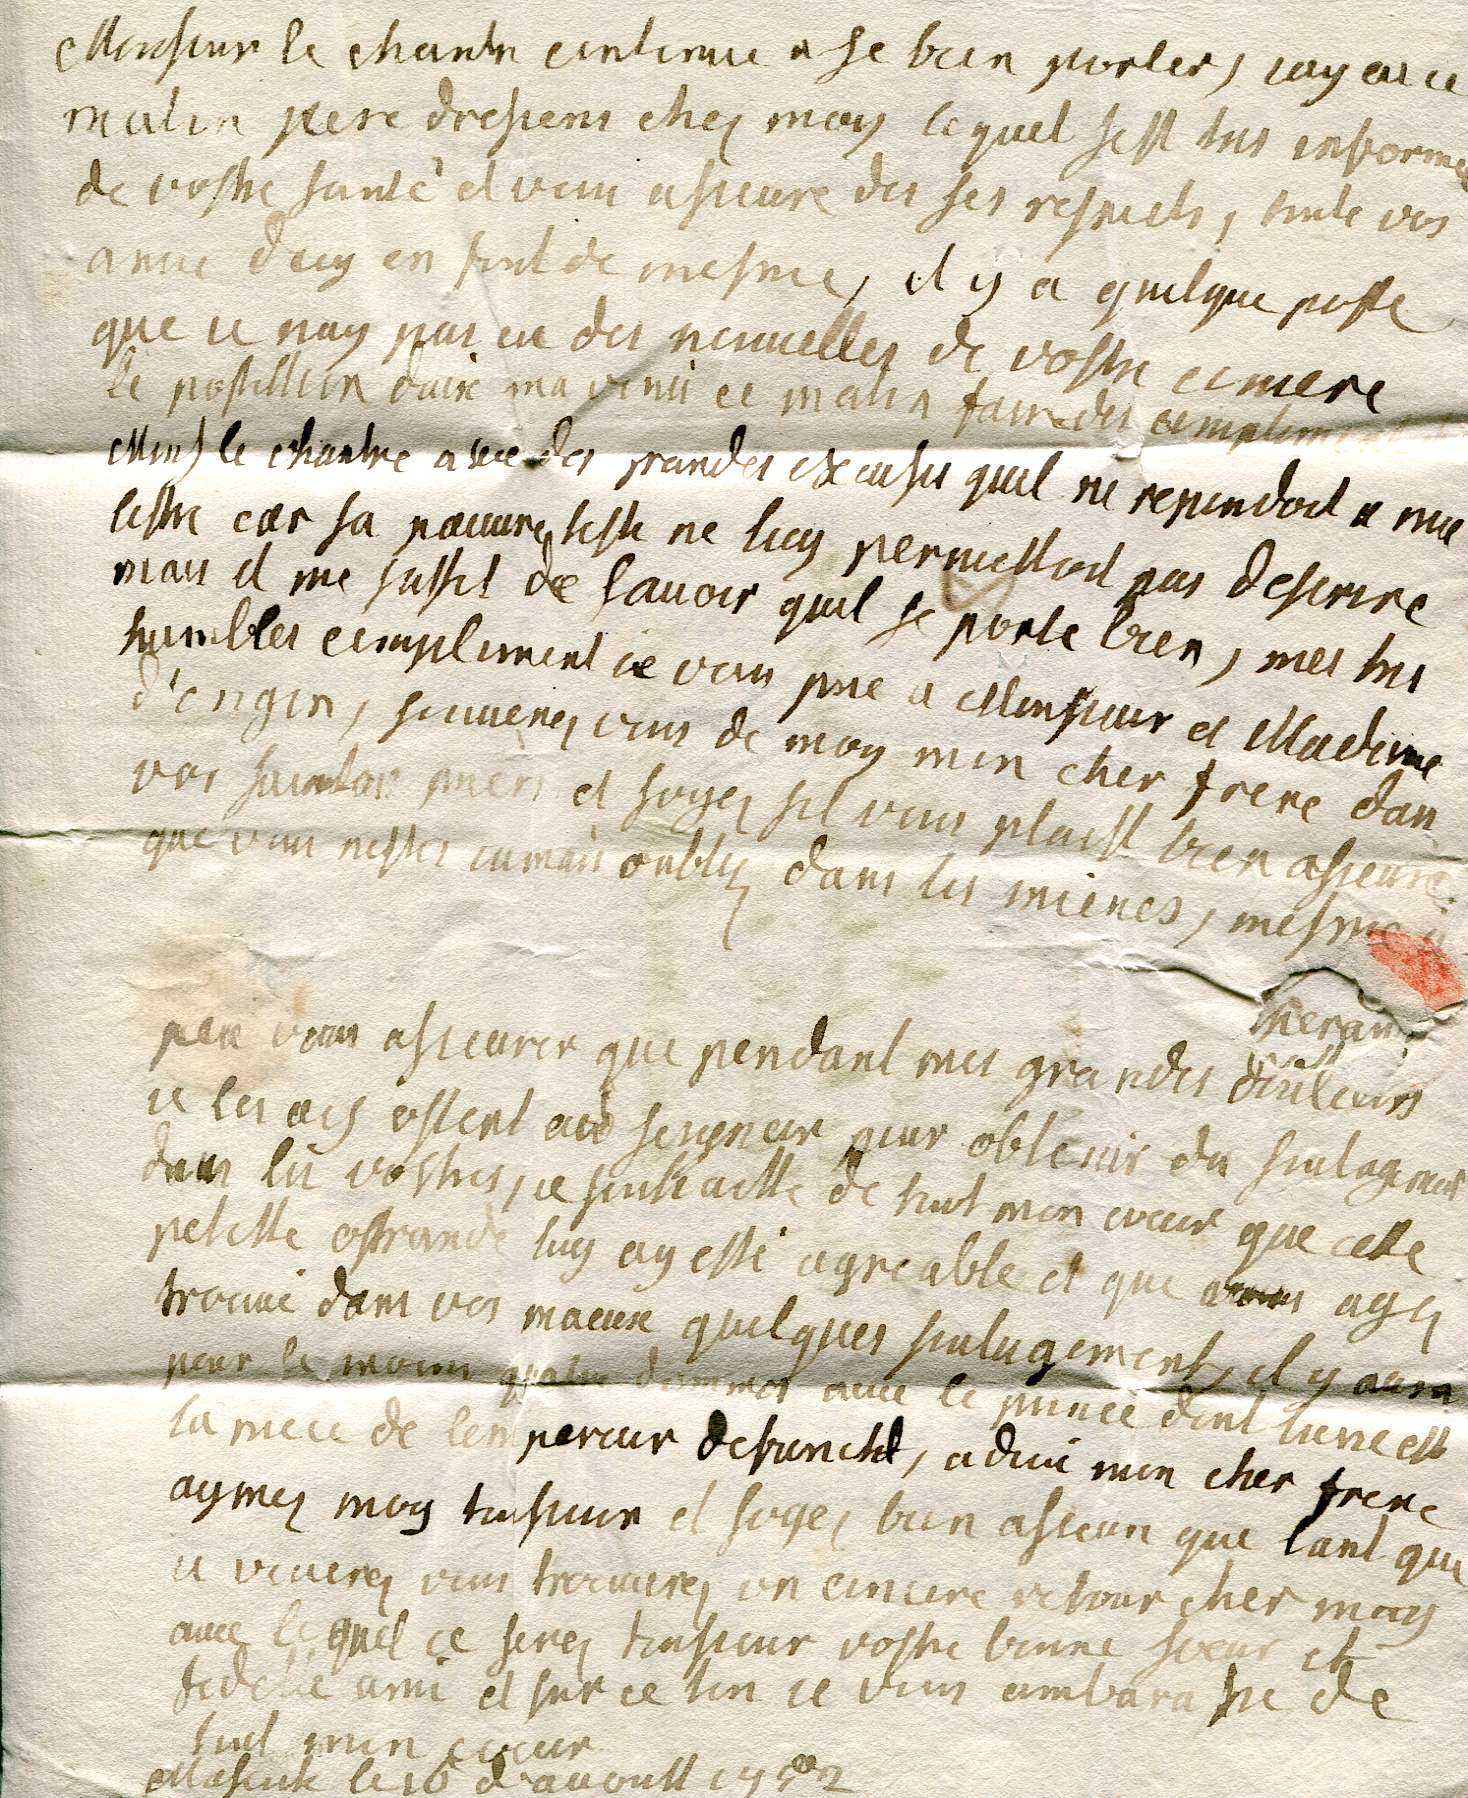 Monsieur le chantre continue a se bien porter, iay eu ce
matin pere dresiens chez moy lequel sest tres informé
de vostre santé et vous assieure des ses respects, toute vos
amie dicy en font de mesme, il y a quelque poste
que ie nay pas eu des nouuelles de vostre comere
le postillion daix ma venu ce matin faire des compliment
Mons le chantre avec des grandes excuses quil ne repondoit a mie
lestre car sa pauure teste ne luy permettoit pas descrire
mais il me suffit de sauoir quil se porte bien, mes tres
humbles compliment ie vous prie a Monsieur et Madame
d'engin, souuenez vous de moy mon cher frere dans
vos saintes prieres et soyez sil vous plaist bien assieuré
que vous nestes iamais oubliez dans les mienes, mesme
peu vous assieurer que pendant mes grandes douleurs
ie les ais offert au seigneur pour obtenir du soulagement
dans les vostres, ie souhaitte de tout mon coeur que cette
petitte offrande luy ay esté agreable et que vous ayez
trouué dans vos maeux quelques soulagement, il y aura
pour le moins quatre dammes avec le prince dont lune est
la niece de lempereur defuncht, adieu mon cher frere
aymez moy tousieur et soyez bien assieuré que tant que
ie viverez vous trouverez un cincere retour cher moy
avec lequel ie serez tousieur vostre bonne soeur et
fidelle amie et sur ce ton ie vous ambarasse de
tout mon coeur
Maseick le 16 d'auoust